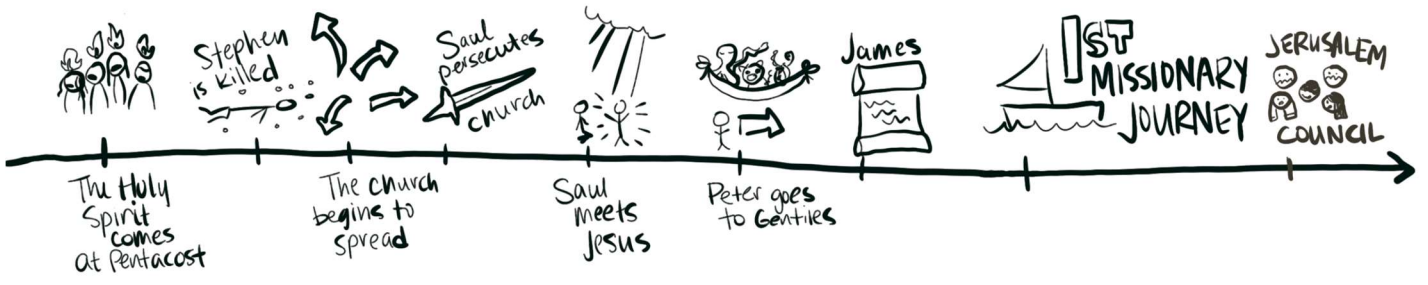 The Holy
Spirit
comes
at Pentacost
Stephen
is killed
The church
begins to
spread
Saul
persecutes
church
Saul
meets
Jesus
Peter goes
to Gentiles
James
1ST
MISSIONARY
JOURNEY
JERUSALEM
COUNCIL